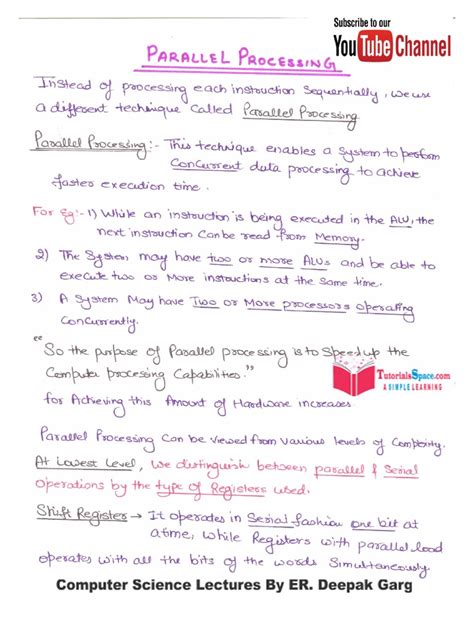 Subscribe to our
YouTube Channel
PARALLEL PROCESSING
Instead of processing each instruction Sequentially, we use
a different technique Called Parallel Processing.
Parallel Processing:- This technique enables a System to perform
Concurrent data processing to achieve
faster execution time.
For Eg:- 1) While an instruction is being executed in the ALU, the
next instruction Can be read from Memory.
2) The System may have two or more ALUs and be able to
execute two or More instructions at the Same time.
3) A System May have Two or More processors operating
Concurrently.
"So the purpose of Parallel processing is to Speed up the
Computer processing Capabilities."
TutorialsSpace.com
A SIMPLE LEARNING
for Achieving this Amount of Hardware increases.
Parallel Processing Can be viewed from Various levels of Complexity.
At Lowest Level, we distinguish between parallel & Serial
operations by the type of Registers used.
Shift Register → It operates in Serial fashion one bit at
a time, while Registers with parallel load
operates with all the bits of the words Simultaneously.
Computer Science Lectures By ER. Deepak Garg